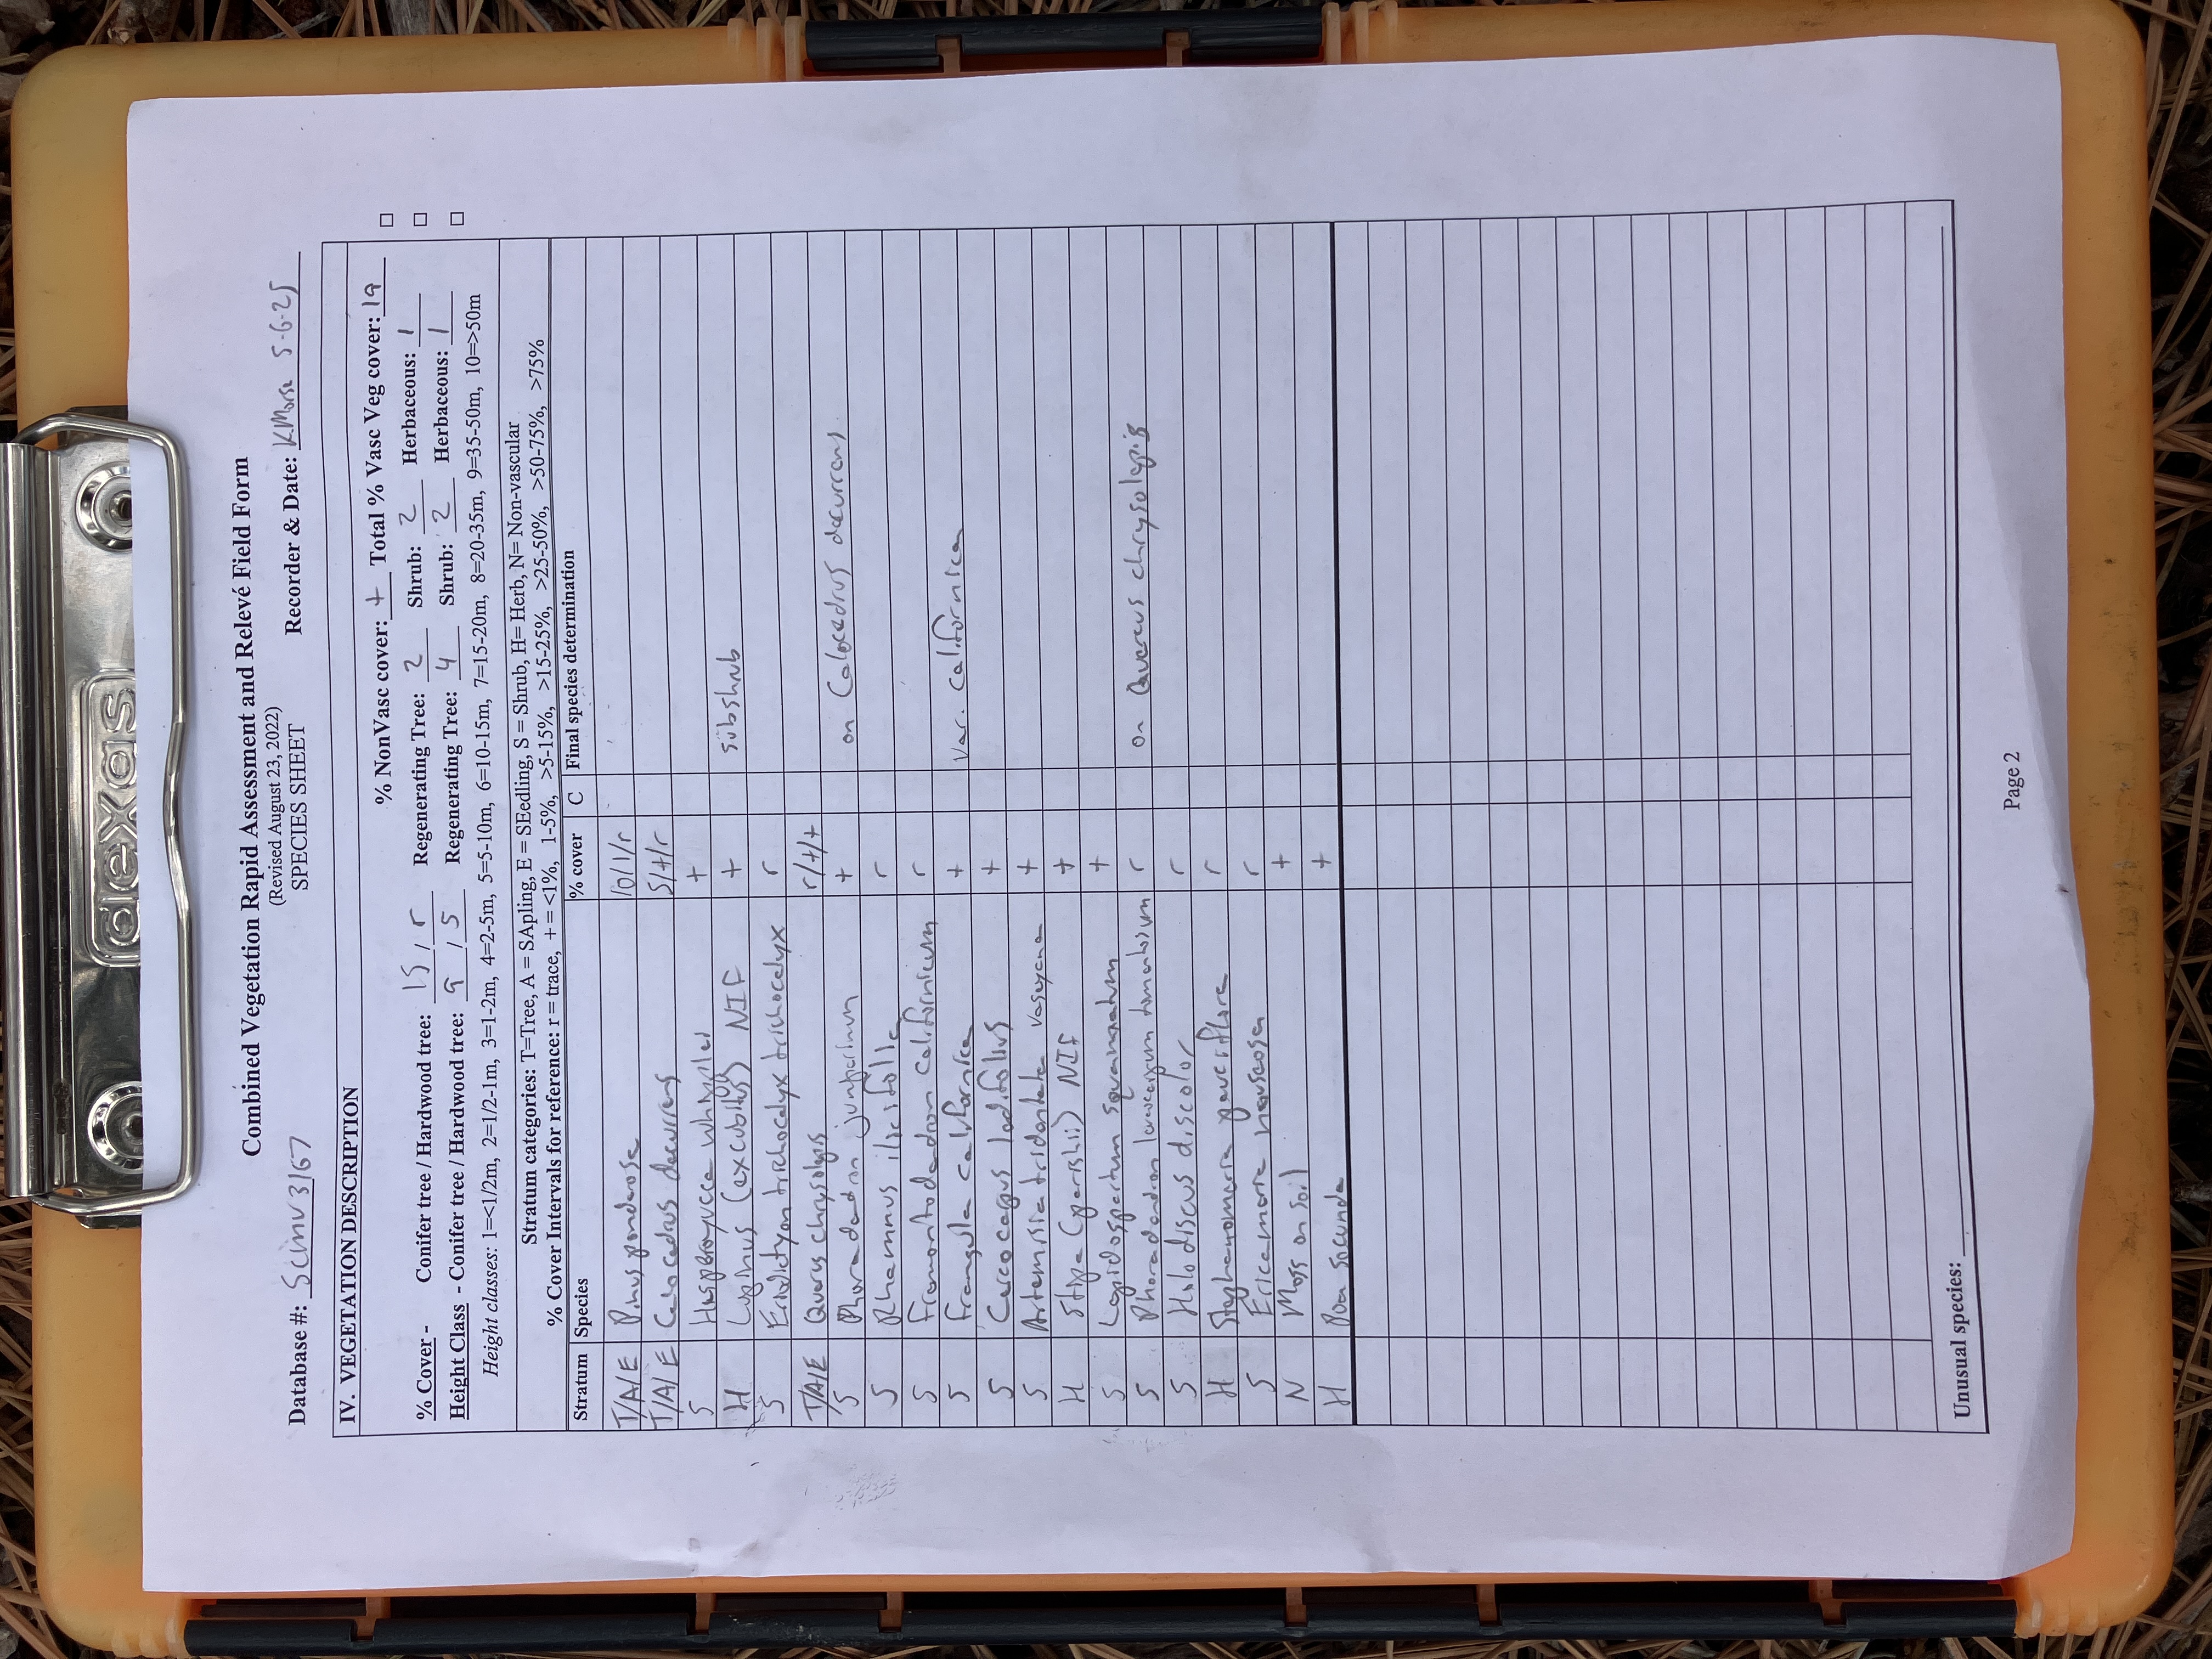 dexas
Combined Vegetation Rapid Assessment and Relevé Field Form
(Revised August 23, 2022)
SPECIES SHEET
Database #: Scinv3167 Recorder & Date: KMorse 5-6-25
IV. VEGETATION DESCRIPTION
% NonVasc cover: + Total % Vasc Veg cover: 19 □
% Cover - Conifer tree / Hardwood tree: 15 / r Regenerating Tree: 2 Shrub: 2 Herbaceous: 1 □
Height Class - Conifer tree / Hardwood tree: 9 / 5 Regenerating Tree: 4 Shrub: 2 Herbaceous: 1 □
Height classes: 1=<1/2m, 2=1/2-1m, 3=1-2m, 4=2-5m, 5=5-10m, 6=10-15m, 7=15-20m, 8=20-35m, 9=35-50m, 10=>50m
Stratum categories: T=Tree, A = SApling, E = SEedling, S = Shrub, H= Herb, N= Non-vascular
% Cover Intervals for reference: r = trace, + = <1%, 1-5%, >5-15%, >15-25%, >25-50%, >50-75%, >75%
Stratum Species % cover C Final species determination
T/A/E Pinus ponderosa 10/1/r
T/A/E Calocedrus decurrens 5/+/r
S Hesperoyucca whipplei +
H Lupinus (excubitus) NIF + subshrub
S Eriodictyon trichocalyx trichocalyx r
T/A/E Quercus chrysolepis r/+/+
S Phoradendron juniperinum + on Calocedrus decurrens
S Rhamnus ilicifolia r
S Fremontodendron californicum r
S Frangula californica + var. californica
S Cercocarpus ledifolius +
S Artemisia tridentata vaseyana +
H Stipa (parishii) NIF +
S Lepidospartum squamatum +
S Phoradendron leucarpum tomentosum r on Quercus chrysolepis
S Holodiscus discolor r
H Stephanomeria pauciflora r
S Ericameria nauseosa r
N Moss on soil +
H Poa secunda +
Unusual species:
Page 2